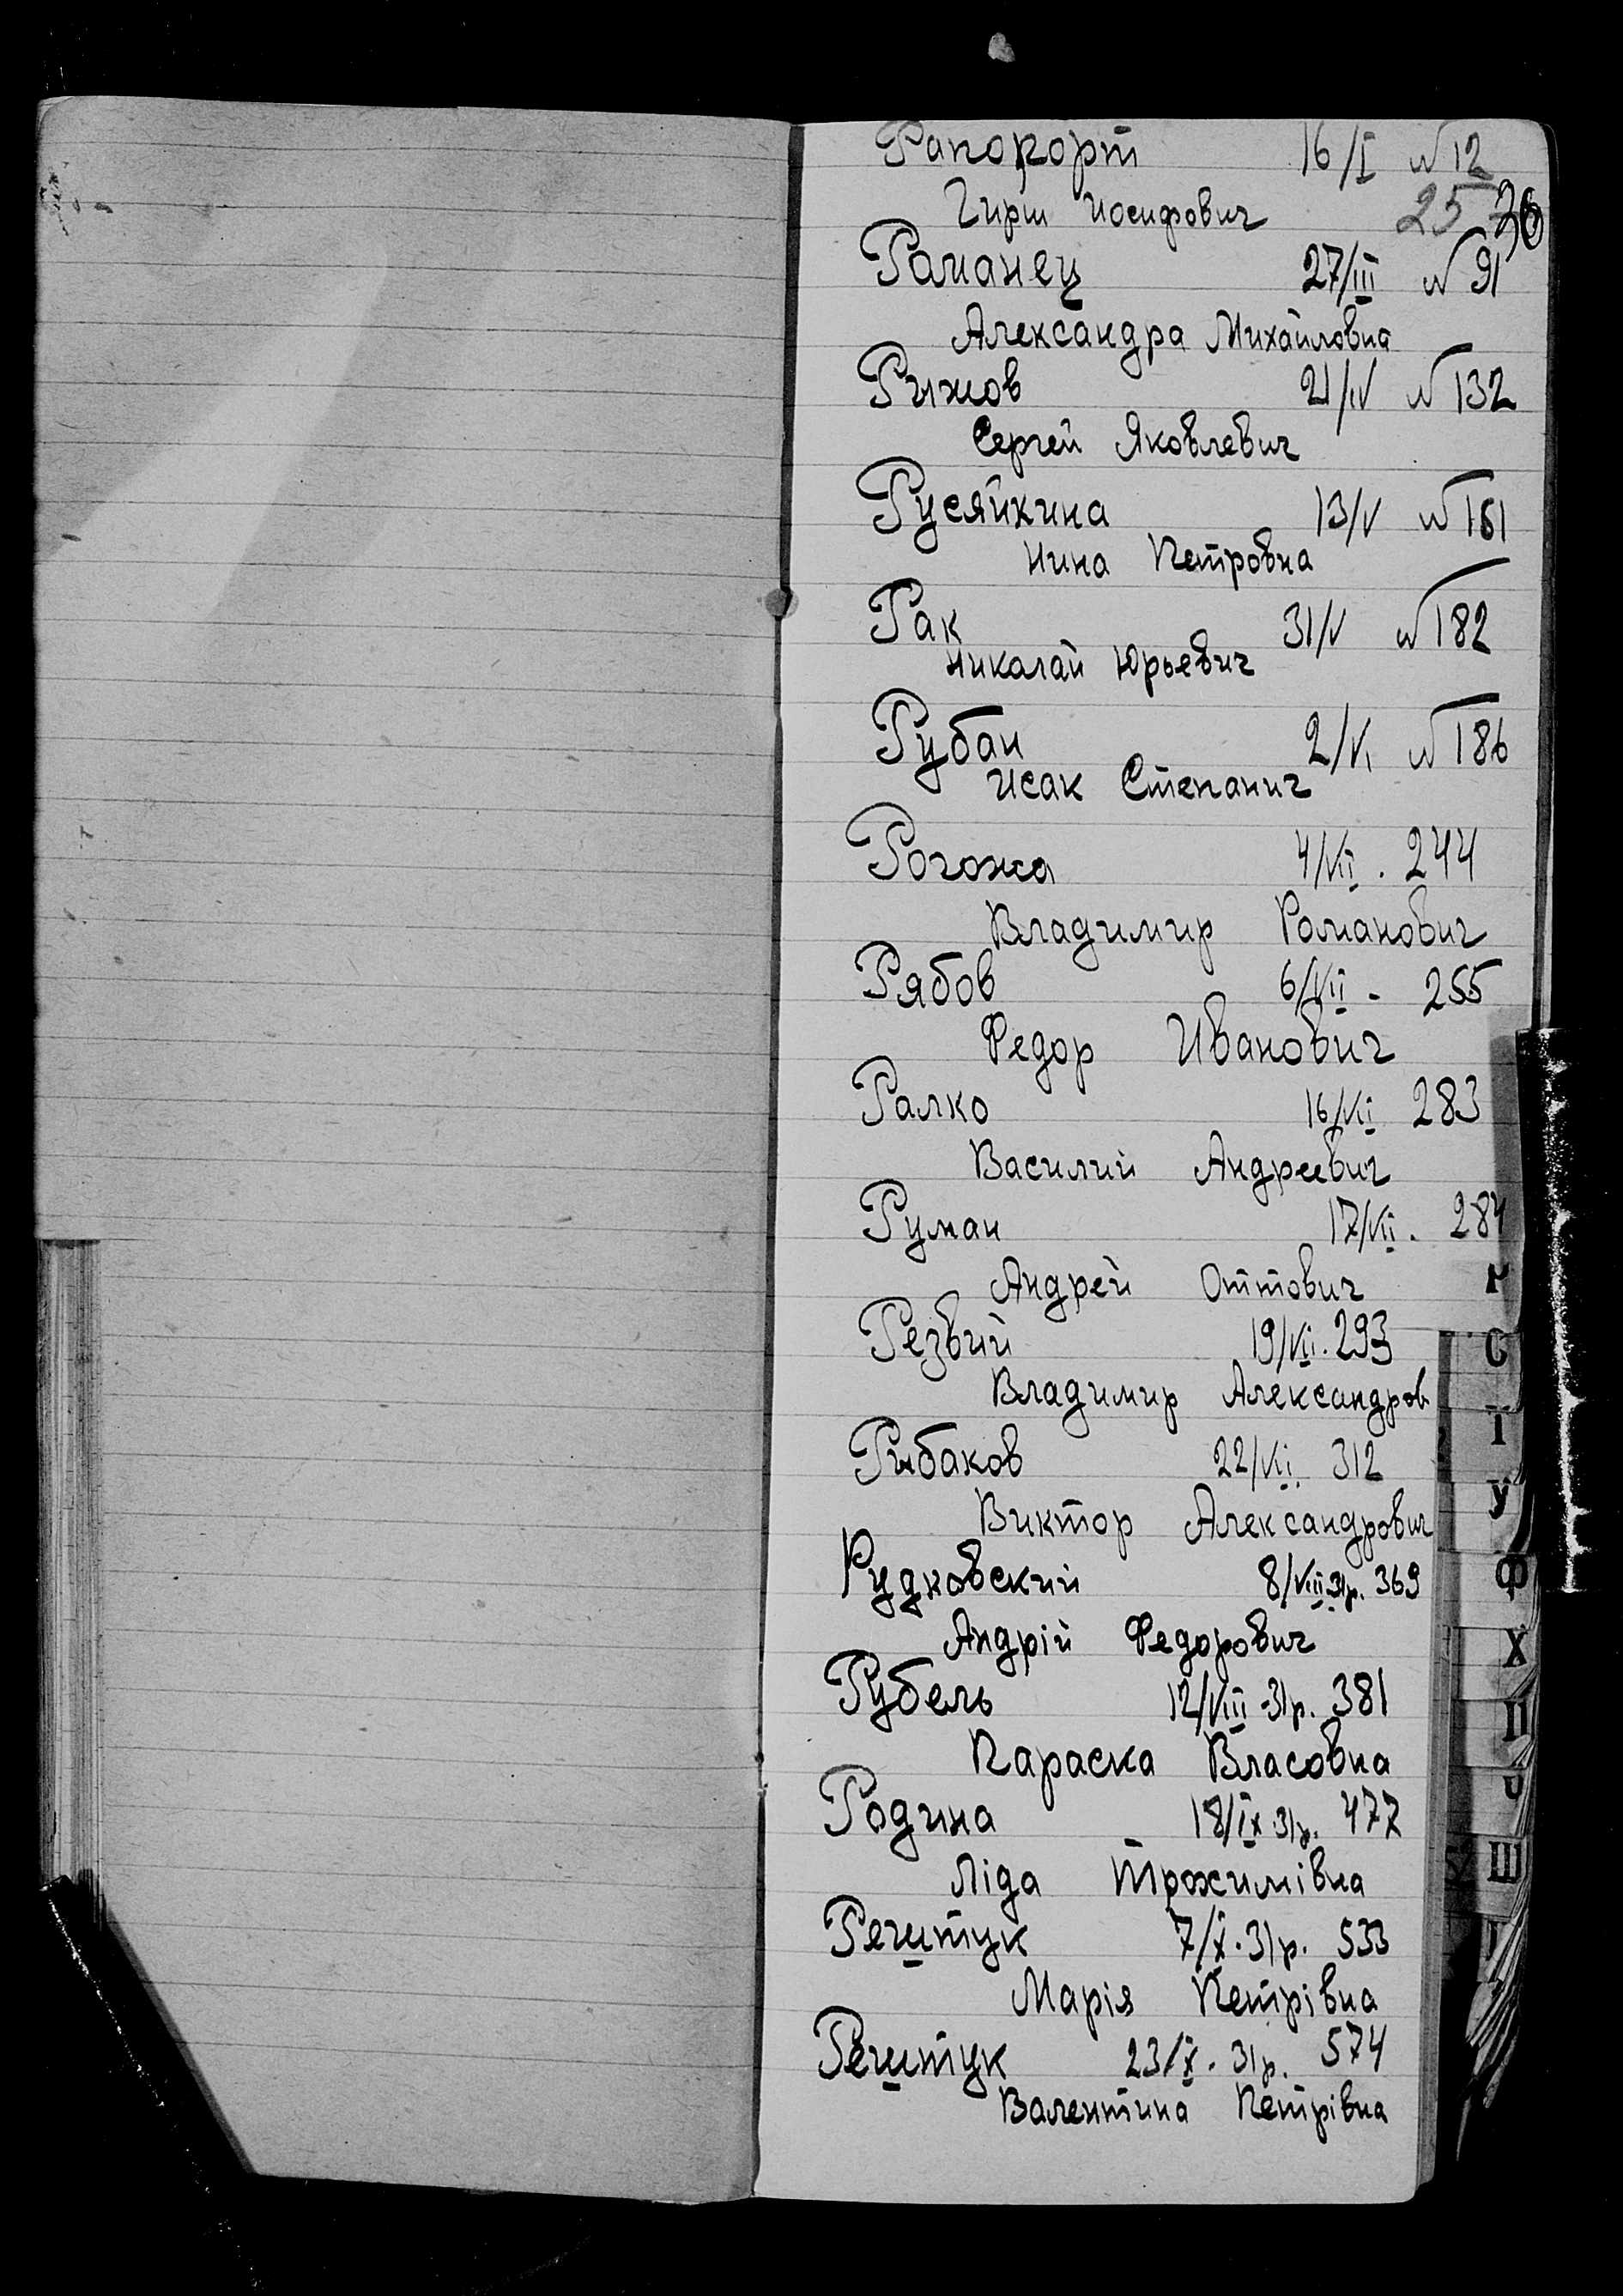 Рапопорт 16/I №12
Гирш Иосифович 25 26
Раманец 27/III №91
Александра Михайловна
Рыжов 21/IV №132
Сергей Яковлевич
Русяйкина 13/V №161
Нина Петровна
Рак 31/V №182
Николай Юрьевич
Рубан 2/VI №186
Исак Степанич
Рогожа 4/VII. 244
Владимир Романович
Рябов 6/VII - 255
Федор Иванович
Ралко 16/VII 283
Василий Андреевич
Руман 17/VII. 284
Андрей Оттович
Резвий 19/VII. 293
Владимир Александров
Рыбаков 22/VII. 312
Виктор Александрович
Рудковский 8/VIII 31р. 369
Андрій Федорович
Рубель 12/VIII -31р. 381
Параска Власовна
Родина 18/IX 31р. 477
Ліда Трохимівна
Решитук 7/X. 31р. 533
Марія Петрівна
Решитук 23/X. 31р. 574
Валентина Петрівна
С
Т
У
Ф
Х
Ц
Ш